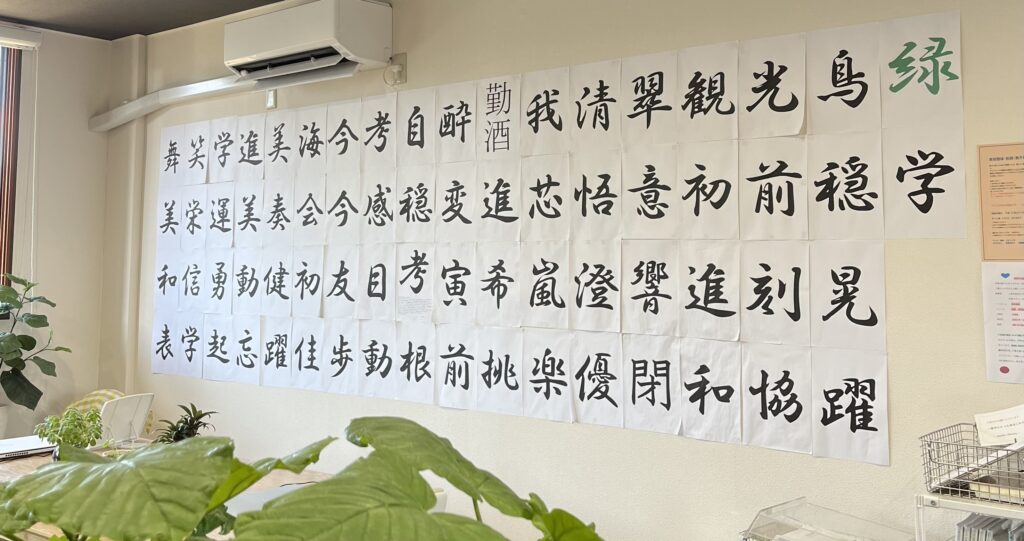 緑学
鳥穏晃躍
光前刻協
観初進和
翠意響閉
清悟澄優
我芯嵐楽
勤酒進希挑
酔変寅前
自穏考根
考感目動
今今友歩
海会初佳
美奏健躍
進美動忘
学運勇起
笑栄信学
舞美和表